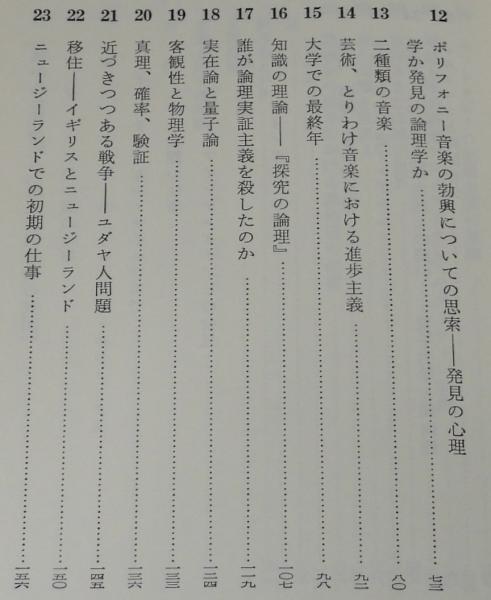 12 ポリフォニー音楽の勃興についての思索──発見の心理
学か発見の論理学か……七三
13 二種類の音楽……八〇
14 芸術、とりわけ音楽における進歩主義……九二
15 大学での最終年……九八
16 知識の理論──『探究の論理』……一〇七
17 誰が論理実証主義を殺したのか……一一九
18 実在論と量子論……一二四
19 客観性と物理学……一三三
20 真理、確率、験証……一三六
21 近づきつつある戦争──ユダヤ人問題……一四五
22 移住──イギリスとニュージーランド……一五〇
23 ニュージーランドでの初期の仕事……一五六